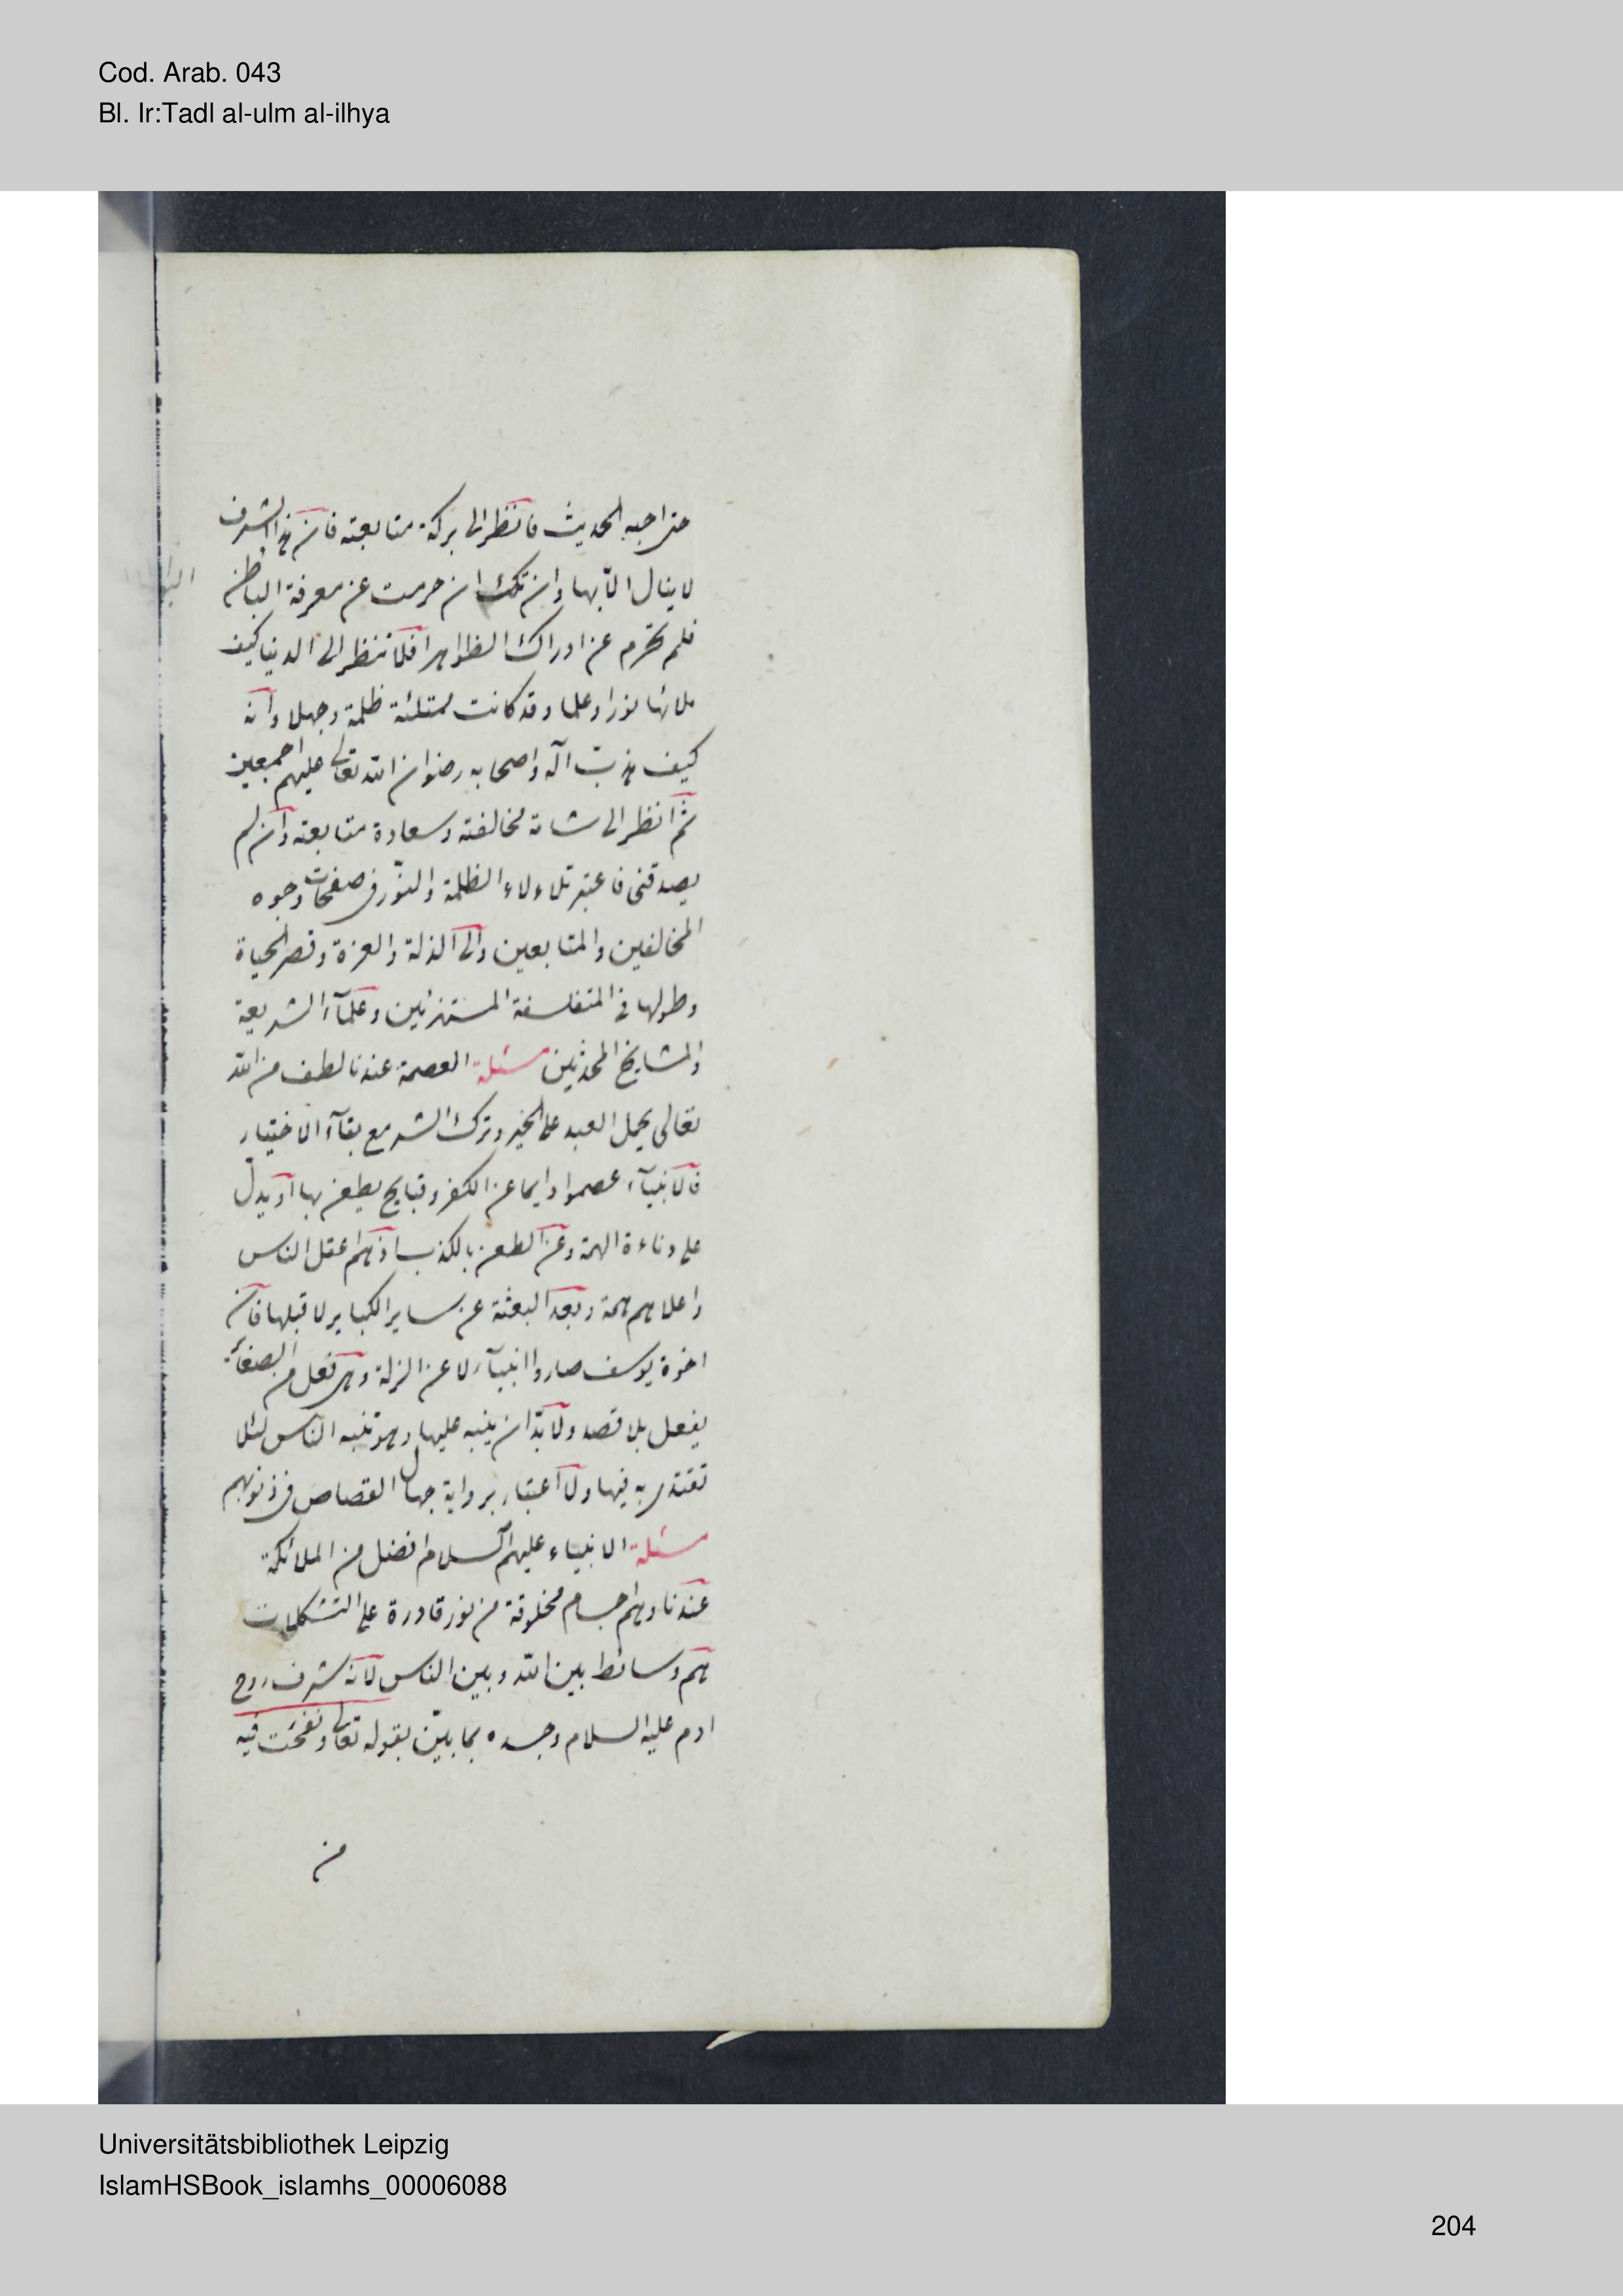 Cod. Arab. 043
Bl. Ir:Tadl al-ulm al-ilhya
حتى احبه الحديث فانظر الى بركة متابعته فان هذا الشرف
لا ينال الا بها وان تك ان حرمت عن معرفة الباطن
فلم تحرم عن ادراك الظواهر افلا تنظر الى الدنيا كيف
ملائها نورا وعلما وقد كانت ممتلئة ظلمة وجهلا وانه
كيف هذب آله واصحابه رضوان الله تعالى عليهم اجمعين
ثم انظر الى شامة مخالفته وسعادة متابعته وان لم
يصدقنى فاعتبر تلاءلاء الظلمة والنور فى صفحات وجوه
المخالفين والمتابعين والى الذلة والعزة وقصر الحياة
وطولها فى المتفلسفة المستهزئين وعلمآء الشريعة
والمشايخ المحدثين مسئلة العصمة عندنا لطف من الله
تعالى يحمل العبد على الخير وترك الشر مع بقآء الاختيار
فالانبيآء عصموا دايما عن الكفر وقبايح يطعن بها او يدل
على دناءة الهمة وعن الطعن بالكذب اذ هم اعقل الناس
واعلاهم همة وبعد البعثة عن ساير الكباير لا قبلها فان
اخوة يوسف صاروا انبيآء لا عن الزلة وهى فعل من الصغائر
يفعل بلا قصد ولا بد ان ينبه عليها وهو تنبه الناس لئلا
تقتدى به فيها ولا اعتبار برواية جهال القصاص فى ذنوبهم
مسئلة الانبياء عليهم السلام افضل من الملائكة
عندنا وهم اجسام مخلوقة من نور قادرة على التشكلات
هم وسائط بين الله وبين الناس لانه شرف روح
ادم عليه السلام وجسده بما بين بقوله تعالى ونفخت فيه
من
Universitätsbibliothek Leipzig
IslamHSBook_islamhs_00006088
204